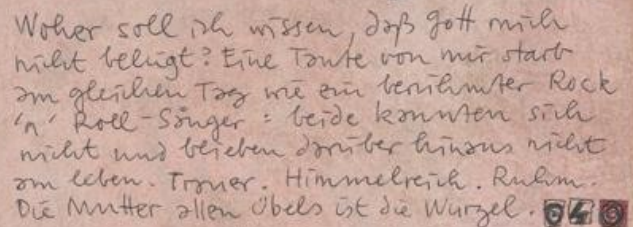 Woher soll ich wissen, daß Gott mich
nicht belügt? Eine Tante von mir starb
am gleichen Tag wie ein berühmter Rock
'n' Roll-Sänger: beide kannten sich
nicht und blieben darüber hinaus nicht
am leben. Trauer. Himmelreich. Ruhm.
Die Mutter allen Übels ist die Wurzel.